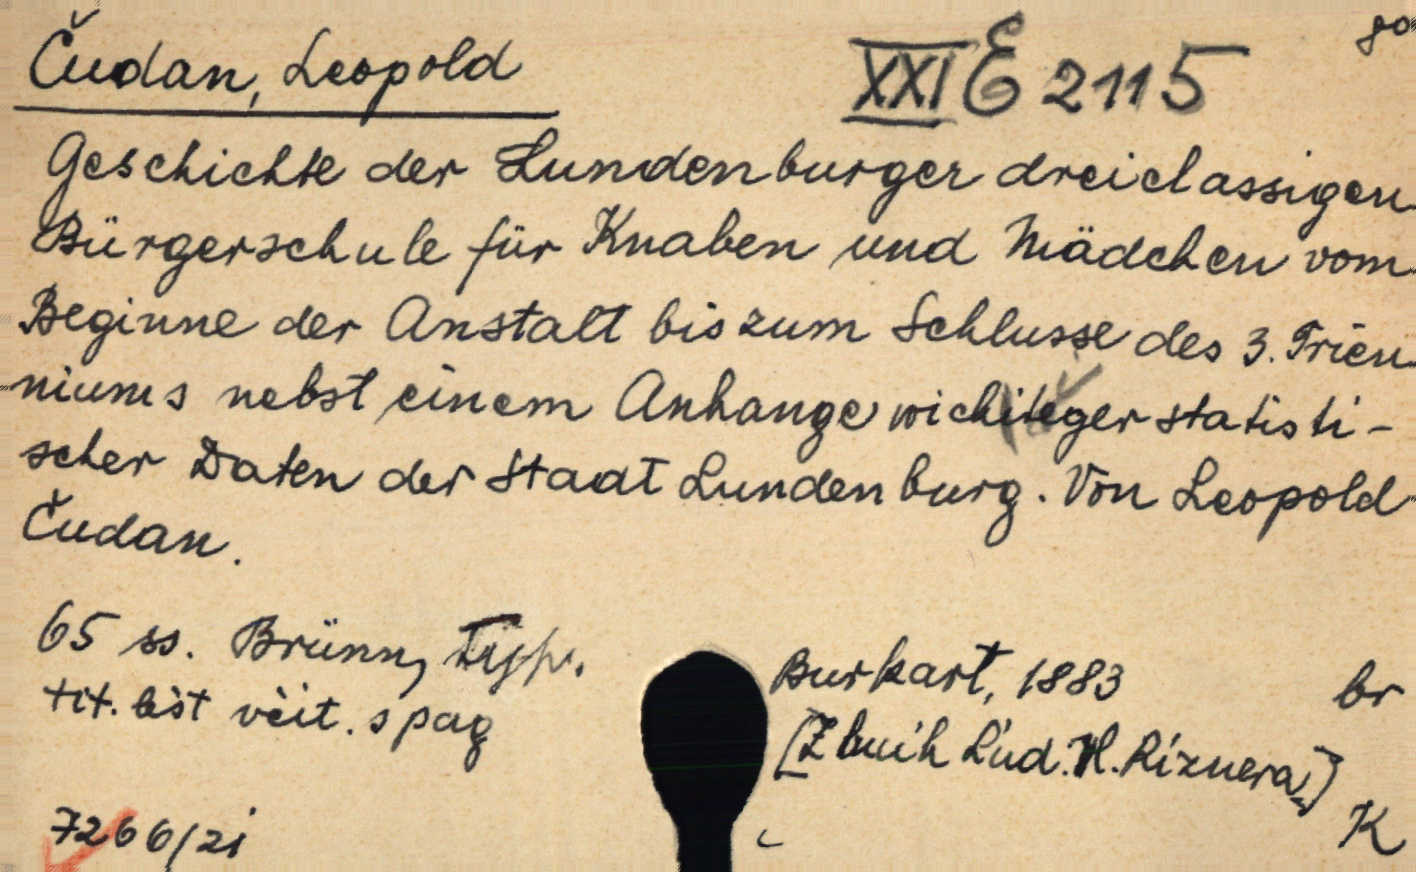 Čudan, Leopold
XXI E 2115
80
Geschichte der Lundenburger dreiclassigen
Bürgerschule für Knaben und Mädchen vom
Beginne der Anstalt bis zum Schlusse des 3. Trien
niums nebst einem Anhange wichiteger statisti-
scher Daten der Stadt Lundenburg. Von Leopold
Čudan.
65 ss. Brünn, Typ. Burkart, 1883
br
tit. list včit. spag
[Z kníh Ľud. V. Riznera]
K
7266/zi